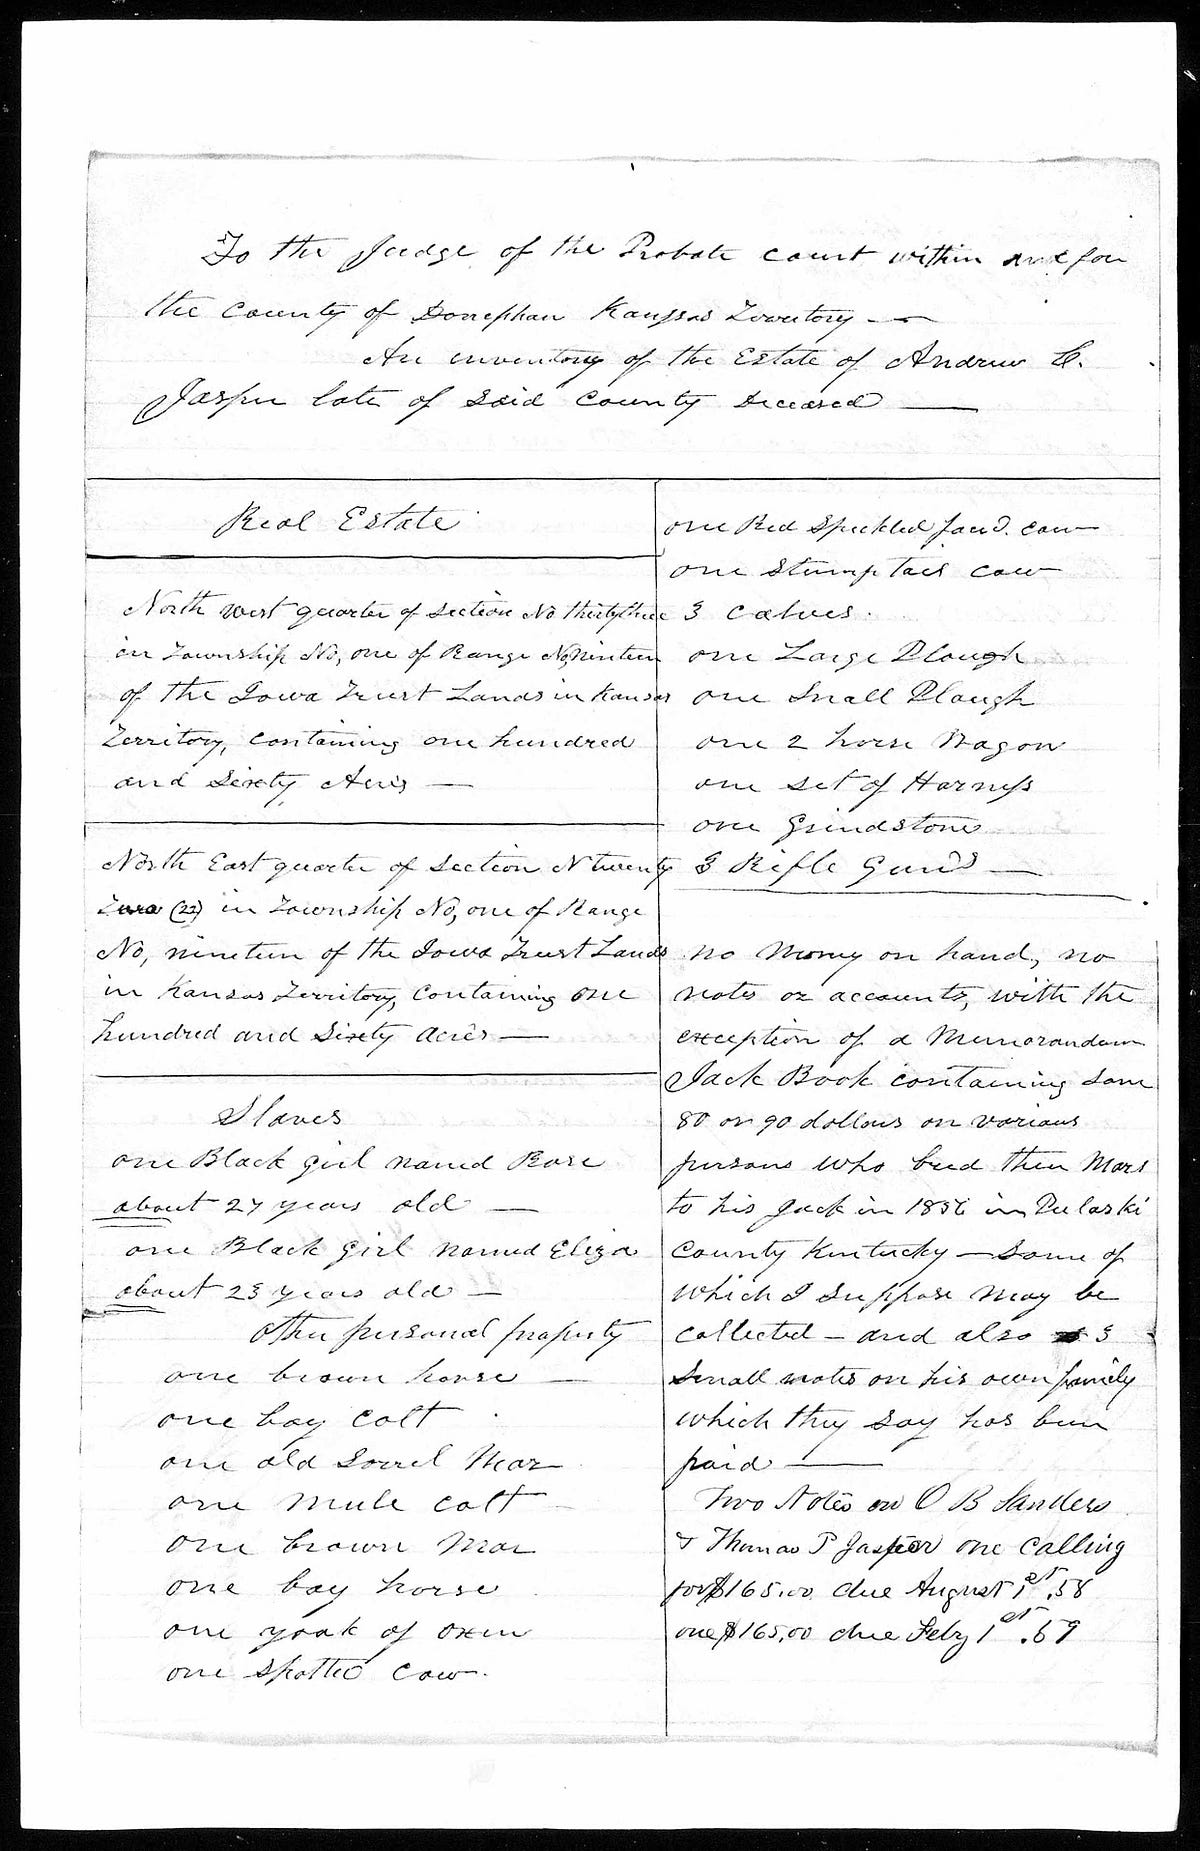 To the Judge of the Probate court within and for
the County of Doniphan Kansas Territory —
An inventory of the Estate of Andrew
Jasper late of said County Deceased —
Real Estate
North west quarter of section No thirty three
in Township No, one of Range No, nineteen
of the Iowa Trust Lands in Kansas
Territory, containing one hundred
and Sixty Acres —
North East quarter of section N twenty
Two (22) in Township No, one of Range
No, nineteen of the Iowa Trust Lands
in Kansas Territory, containing one
hundred and Sixty acres —
Slaves
one Black girl named Rose
about 27 years old —
one Black girl named Eliza
about 23 years old —
Other personal property
one brown horse —
one bay colt
one old Sorrel Mar
one Mule colt
one brown Mar
one bay horse
one yoak of oxen
one Spotted Cow.
one Red Speckled facd. cow
one Stump tail cow
3 calves.
one Large Plough
one Small Plough
one 2 horse Wagon
one set of Harness
one Grindstone
3 Rifle Guns —
no Money on hand, no
notes or accounts, with the
exception of a Memorandum
Jack Book containing some
80 or 90 dollars on various
persons who bred their Mars
to his Jack in 1856 in Pulaski
County Kentucky — some of
which I suppose may be
collected — and also 3
small notes on his own family
which they say has been
paid —
Two Notes on O B Sanders
& Thomas P Jasper one calling
for $165.00 due August 1st .58
one $165,00 due Feby 1st .59